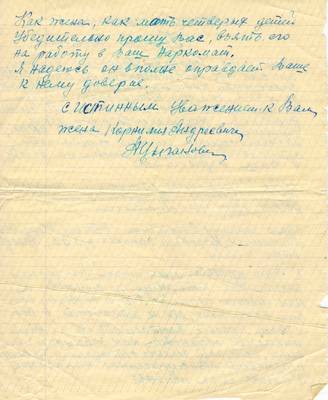 Как жена, как мать четверых детей
Убедительно прошу Вас, взять его
на работу в Ваш Наркомат.
Я надеюсь он вполне оправдает Ваше
к нему доверие.
с истинным Уважением к Вам
жена Корнилия Андреевича